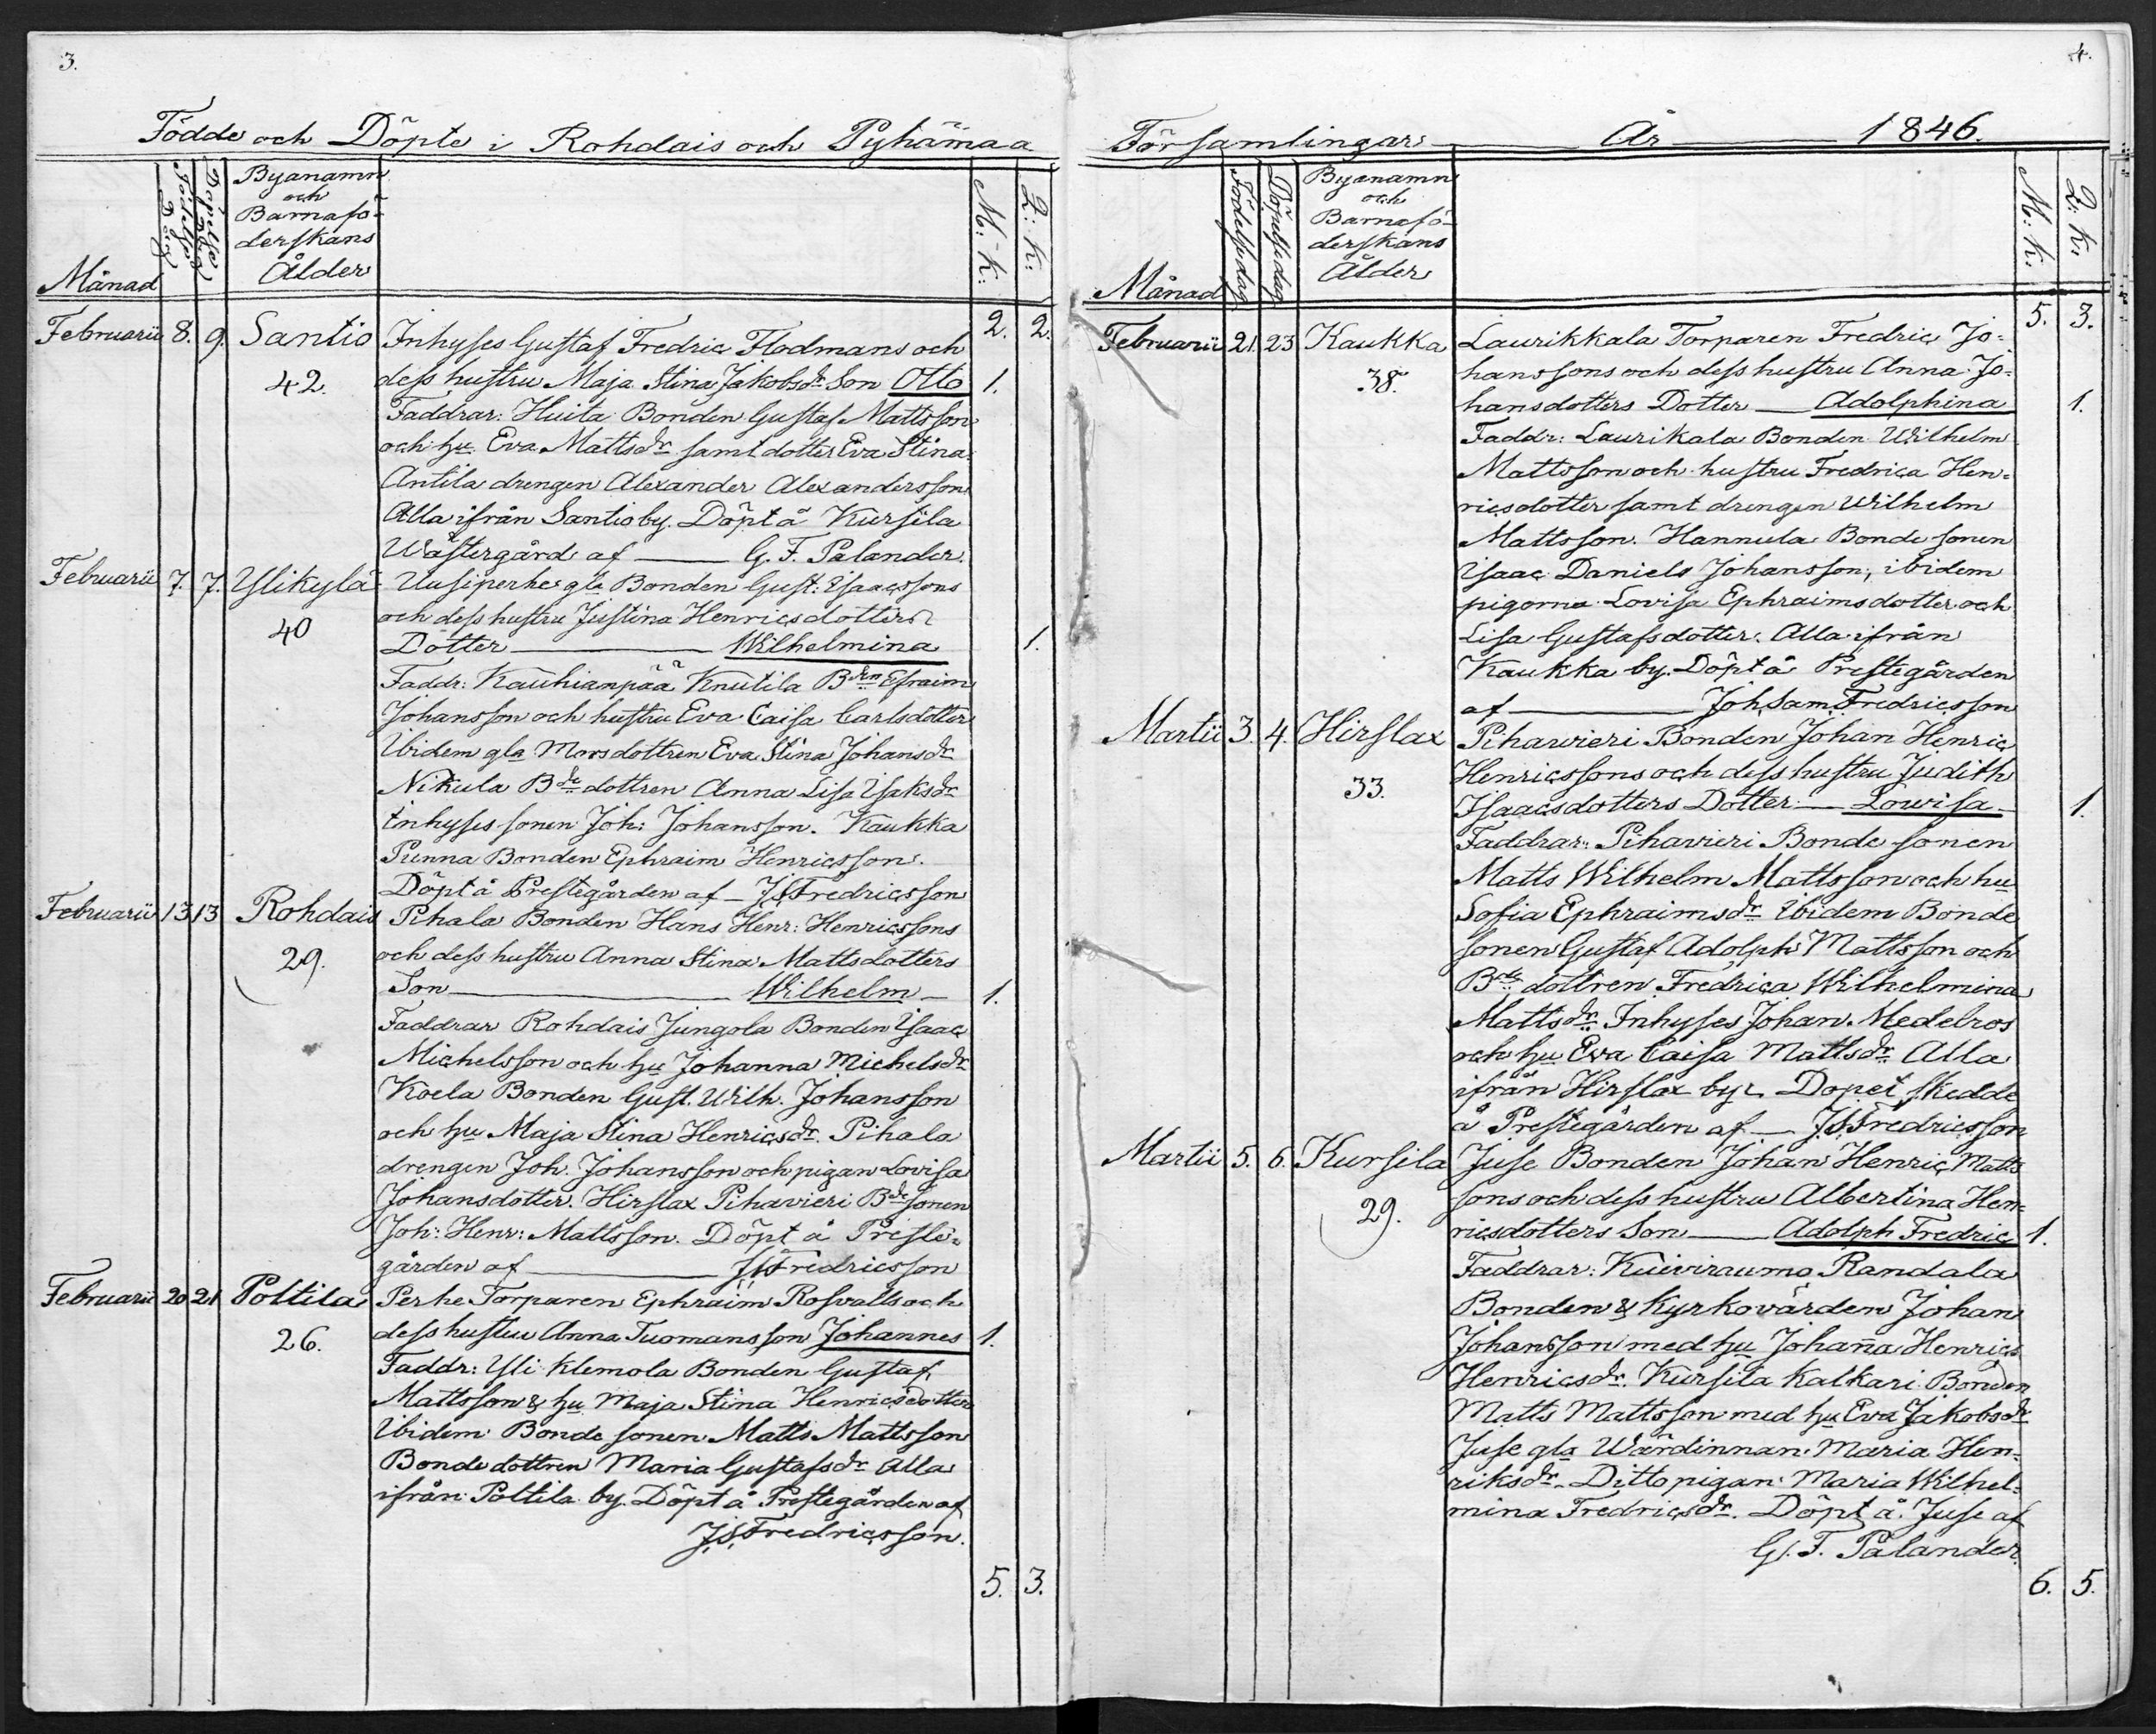 3.
Födde och Döpte i Rohdais och Pyhämaa
Månad
Födelse Dag
Döpelse Dag
Byanamn
och
Barnafö-
derskans
Ålder
M: K:
Q: K:
2. 2.
Februarii 8. 9. Santio Inhyses Gustaf Fredric Flodmans och
42. dess hustru Maja Stina Jakobsdr Son Otto 1.
Faddrar: Huita Bonden Gustaf Mattsson
och hu Eva Mattsdr samt dotter Eva Stina
Antila drengen Alexander Alexandersson
Alla ifrån Santio by. Döpt å Kursila
Wästergård af G. F. Palander.
Februarii 7. 7. Ylikylä Uusiperhe gla Bonden Gust: Isaacssons
40 och dess hustru Justina Henricsdotters
Dotter Wilhelmina 1.
Faddr: Kauhianpää Knutila Bden Efraim
Johansson och hustru Eva Caisa Carlsdotter
Ibidem gla Morsdottren Eva Stina Johansdr
Nikula Bde dottren Anna Lisa Isaksdr
inhyses sonen Joh: Johansson. Kaukka
Punna Bonden Ephraim Henricsson.
Döpt å Prestegården af J.S. Fredricsson
Februarii 13 13 Rohdais Pihala Bonden Hans Henr: Henricssons
29. och dess hustru Anna Stina Mattsdotters
Son Wilhelm 1.
Faddrar Rohdais Jungola Bonden Isaac
Michelsson och hu Johanna Michelsdr
Koela Bonden Gust. Wilh. Johansson
och hu Maja Stina Henricsdr. Pihala
drengen Joh. Johansson och pigan Lovisa
Johansdotter. Hirslax Pihavieri Bde sonen
Joh: Henr: Mattsson. Döpt å Preste-
gården af J.S. Fredricsson
Februarii 20 21 Poltila Perhe Torparen Ephraim Rosvalls och
26. dess hustru Anna Tuomans son Johannes 1.
Faddr: Yli Klemola Bonden Gustaf
Mattsson & hu Maja Stina Henricsdotter
Ibidem Bonde sonen Matts Mattsson
Bonde dottren Maria Gustafsdr Alla
ifrån Poltila by. Döpt å Prestegården af
J.S. Fredricsson.
5. 3.
4.
Församlingar År 1846.
Månad
Födelse dag
Döpelse dag
Byanamn
och
Barnafö-
derskans
Ålder
M: K:
Q: K:
5. 3.
Februarii 21. 23 Kaukka Laurikkala Torparen Fredric Jo-
38. hanssons och dess hustru Anna Jo-
hansdotters Dotter Adolphina 1.
Faddr: Laurikala Bonden Wilhelm
Mattsson och hustru Fredrica Hen-
ricsdotter samt drengen Wilhelm
Mattsson. Hannula Bonde sonen
Isaac Daniels Johansson, ibidem
pigorna Lovisa Ephraimsdotter och
Lisa Gustafsdotter. Alla ifrån
Kaukka by. Döpt å Prestegården
af Joh. Sam. Fredricsson
Martii 3. 4. Hirslax Pihavieri Bonden Johan Henric
33. Henricssons och dess hustru Judith
Isaacsdotters Dotter Lowisa 1.
Faddrar: Pihavieri Bonde sonen
Matts Wilhelm Mattsson och hu
Sofia Ephraimsdr Ibidem Bonde
sonen Gustaf Adolph Mattsson och
Bde dottren Fredrica Wilhelmina
Mattsdr. Inhyses Johan Medelros
och hu Eva Caisa Mattsdr. Alla
ifrån Hirslax by. Dopet skedde
å Prestegården af J.S. Fredricsson
Martii 5. 6. Kursila Juse Bonden Johan Henric Matts
29. sons och dess hustru Albertina Hen-
ricsdotters Son Adolph Fredric 1.
Faddrar: Kuiviraumo Randala
Bonden & Kyrkovärden Johan
Johansson med hu Johanna Henrics
Henricsdr. Kursila Kalkari Bonden
Matts Mattsson med hu Eva Jakobsdr
Juse gla Wärdinnan Maria Hen-
riksdr. Ditto pigan Maria Wilhel-
mina Fredricsdr. Döpt å Juse af
G. F. Palander.
6. 5.